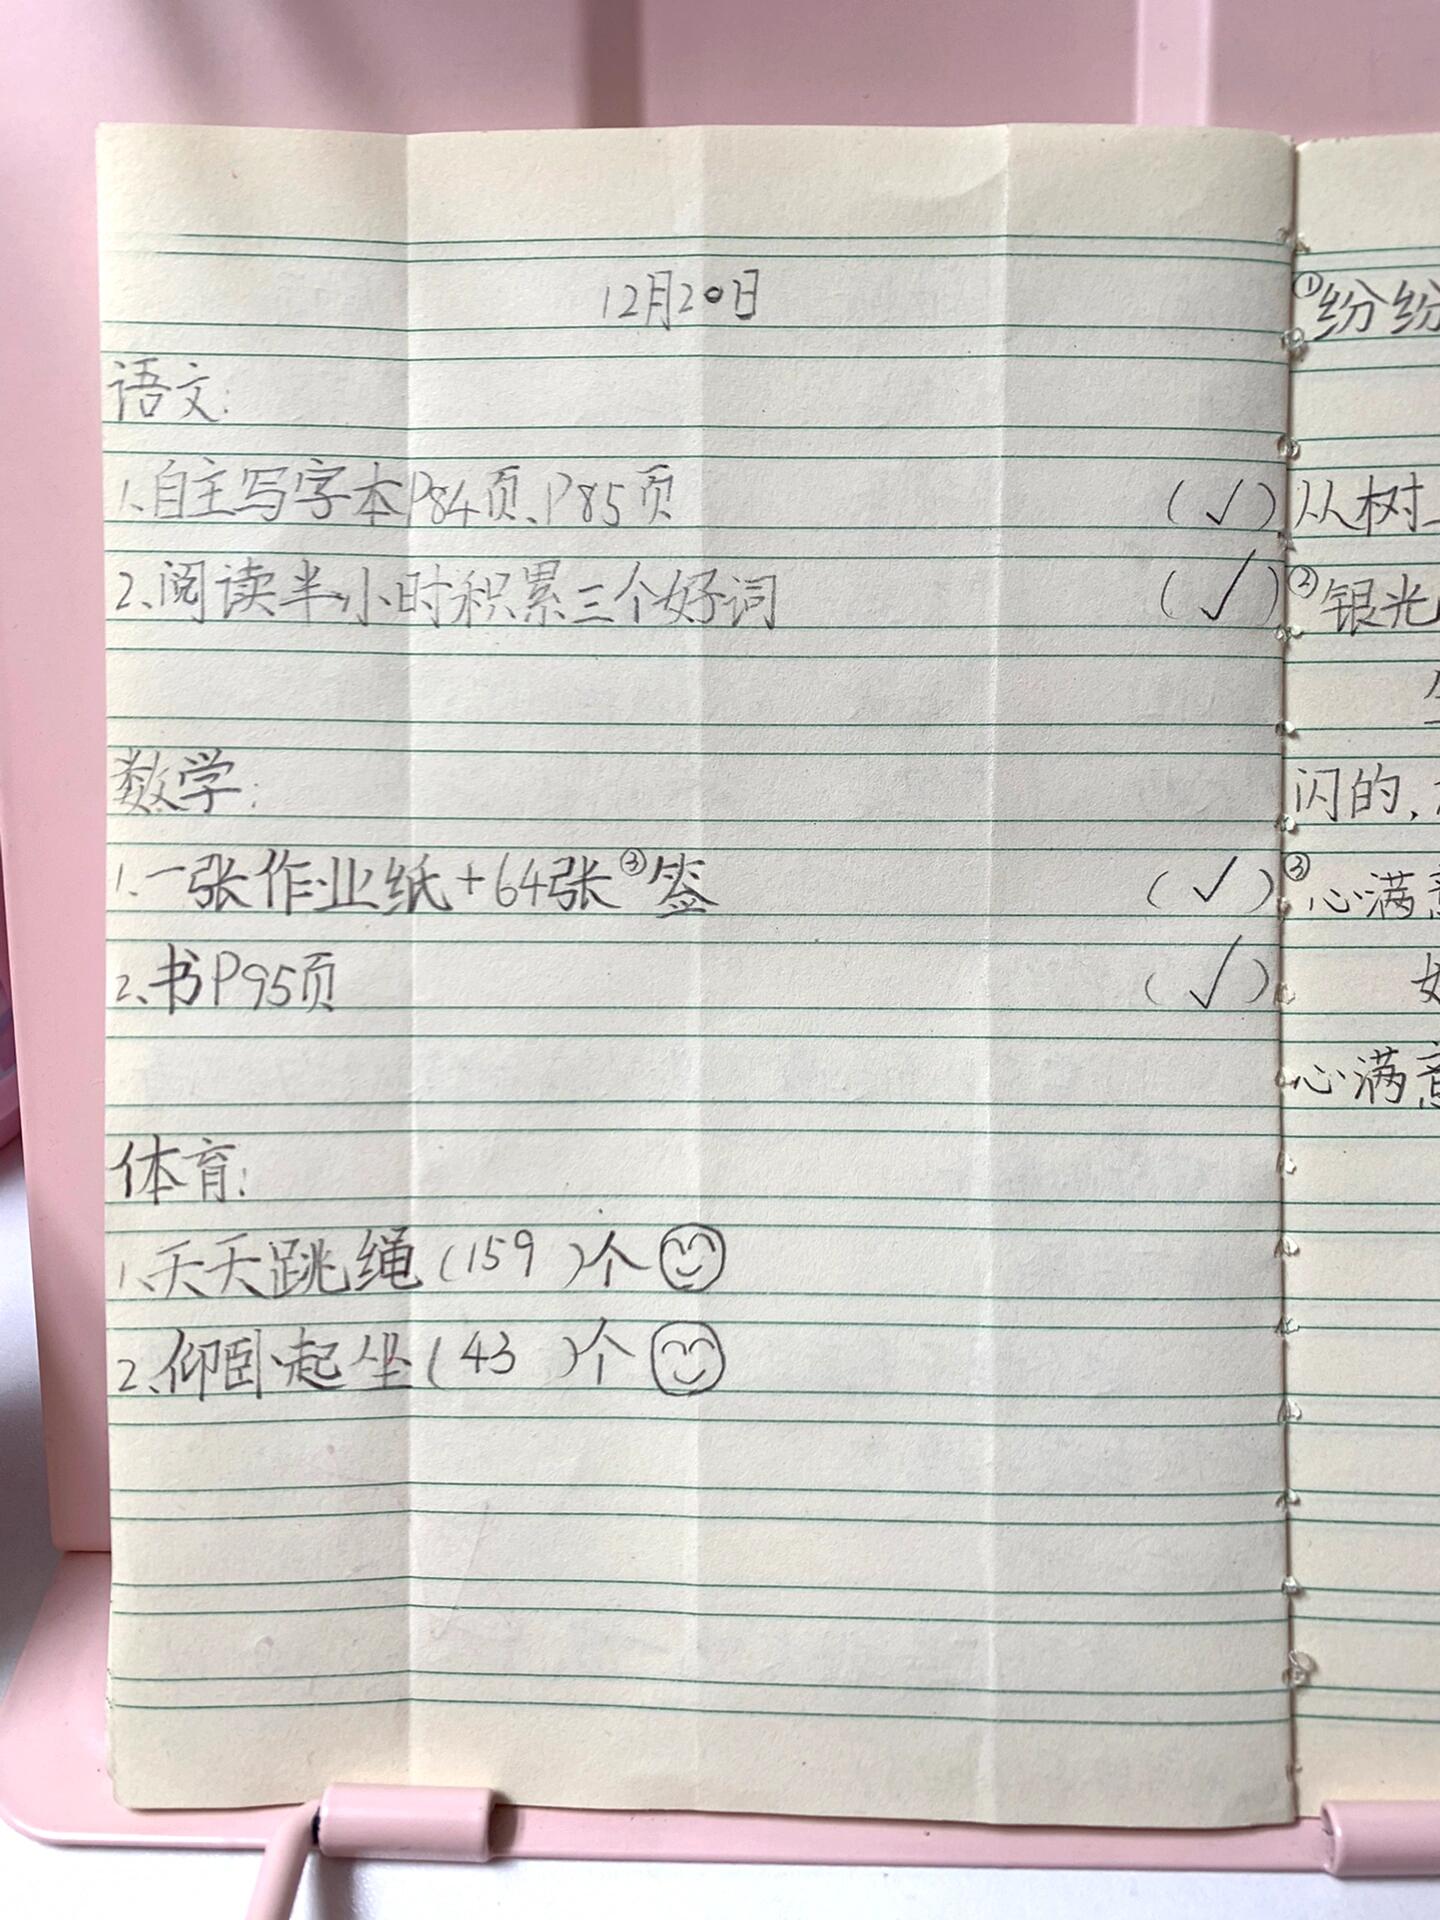 12月20日
语文:
1、自主写字本P84页、P85页 (√)
2、阅读半小时积累三个好词 (√)
数学:
1、一张作业纸+64张③签 (√)
2、书P95页 (√)
体育:
1、天天跳绳(159)个
2、仰卧起坐(43)个
①纷纷
从树
②银光
闪的,
③心满意
心满意